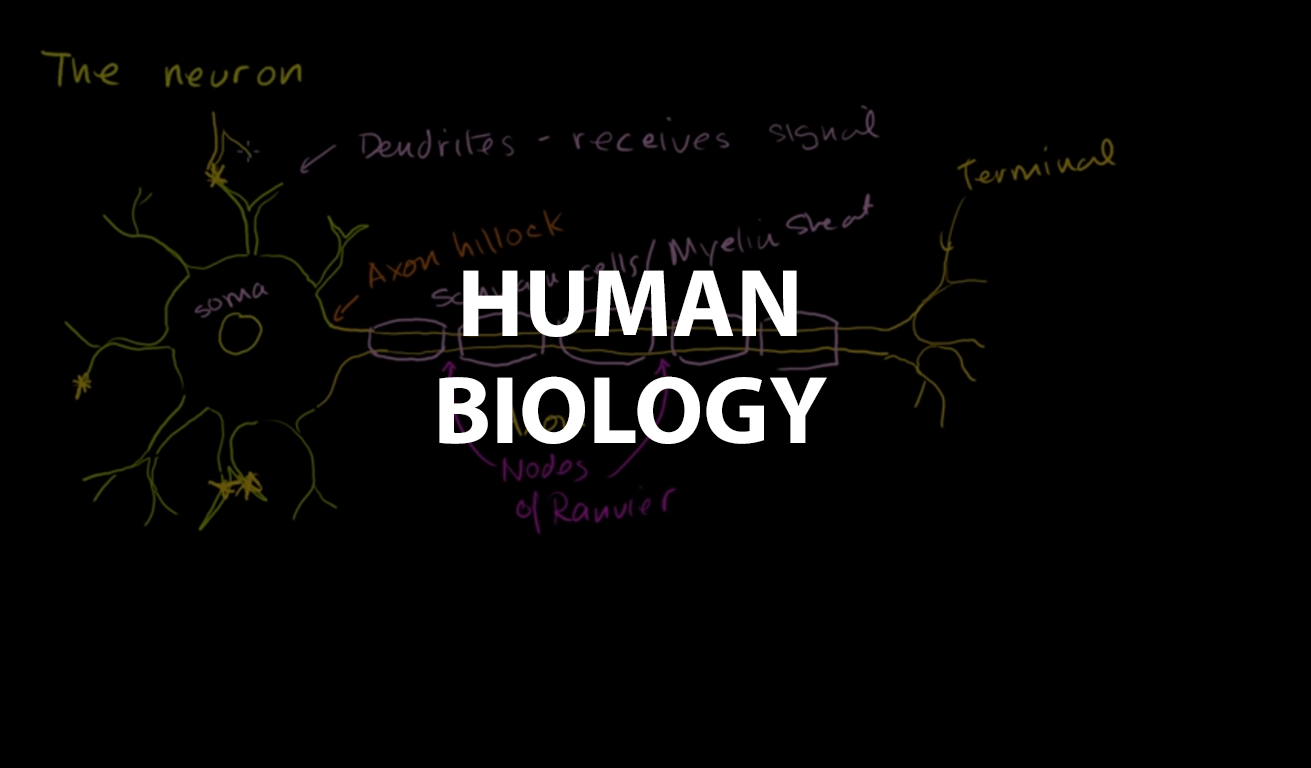 The neuron
Dendrites - receives signal
Terminal
Axon hillock
cells/Myelin Sheat
soma
HUMAN
BIOLOGY
Nodes
of Ranvier